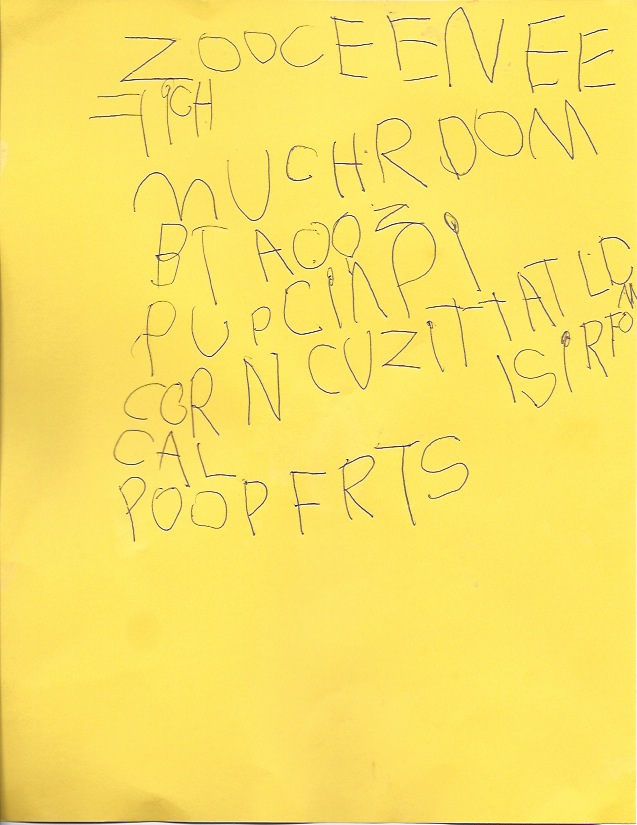 ZOOCEENEE
FICH
MUCHROOM
BTAOOZ
PUPCINPI
CORN CUZITTATLD
ISIRFOM
CAL
POOPERTS